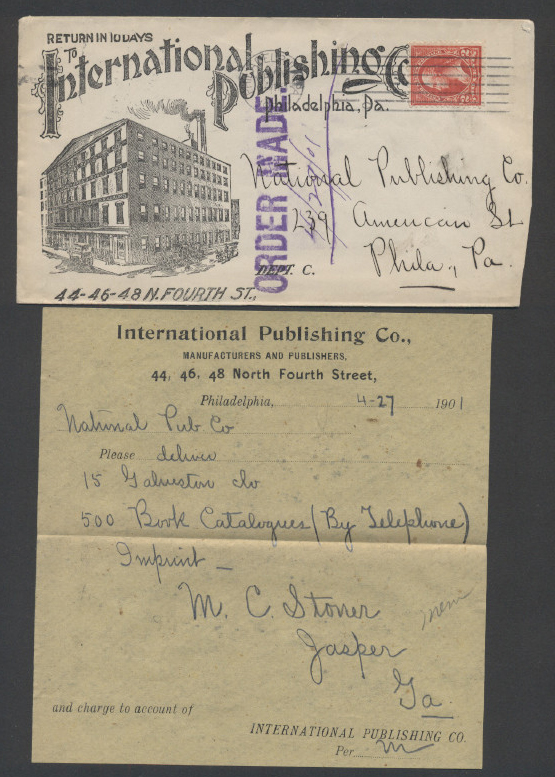 RETURN IN 10 DAYS
To
International
Publishing Co.
Philadelphia, Pa.
ORDER MADE.
National Publishing Co.
239 American St
Phila., Pa.
DEPT. C.
44-46-48 N. FOURTH ST.,
International Publishing Co.,
MANUFACTURERS AND PUBLISHERS,
44, 46, 48 North Fourth Street,
Philadelphia, 4-27 1901
National Pub Co
Please deliver
15 Galveston clo
500 Book Catalogues (By Telephone)
Imprint —
M. C. Stoner
Jasper
Ga.
and charge to account of
INTERNATIONAL PUBLISHING CO.
Per m